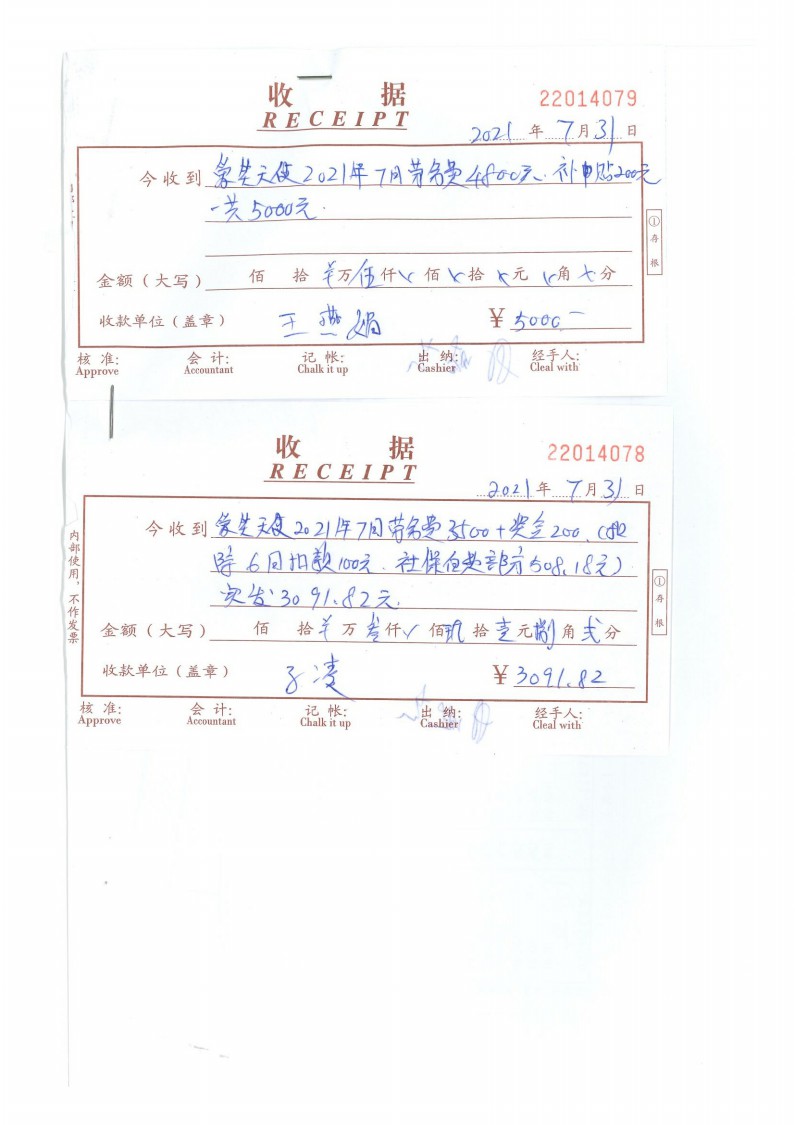 收 据
RECEIPT
22014079
2021 年 7 月 31 日
今收到 蒙芸天使2021年7月劳务费4800元.补申贴200元
一共5000元.
金额（大写） 佰 拾 羊万 伍仟 佰 拾 元 角 分
收款单位（盖章） 王燕娟 ¥ 5000一
①存根
核 准: 会 计: 记 帐: 出 纳: 经手人:
Approve Accountant Chalk it up Cashier Cleal with
收 据
RECEIPT
22014078
2021 年 7 月 31 日
今收到 2021年7月劳务费3500+奖金200.(扣
除6月扣款100元.社保自费部分508.18元)
实发:3091.82元.
金额（大写） 佰 拾 羊万 叁仟 佰 玖拾 壹元 捌角 弍分
收款单位（盖章） 子凌 ¥ 3091.82
内部使用，不作发票
①存根
核 准: 会 计: 记 帐: 出 纳: 经手人:
Approve Accountant Chalk it up Cashier Cleal with